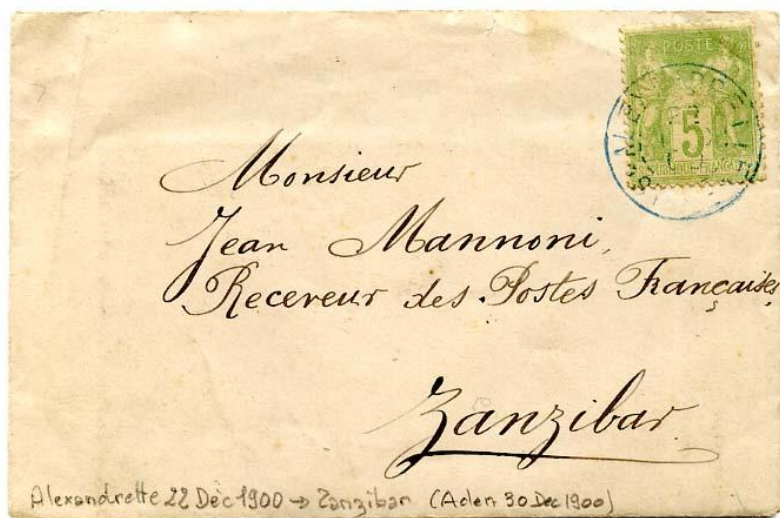 POSTE
5
Monsieur
Jean Mannoni,
Receveur des Postes Françaises
Zanzibar
Alexandrette 22 Déc 1900 → Zanzibar (Aden 30 Dec 1900)